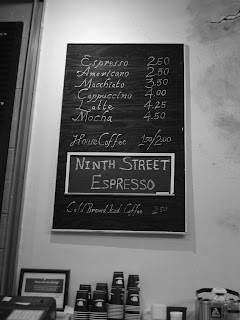 Espresso 2.50
Americano 2.50
Macchiato 3.50
Cappuccino 4.00
Latte 4.25
Mocha 4.50
House Coffee 1.50/2.00
NINTH STREET
ESPRESSO
Cold Brewed Iced Coffee 2.50